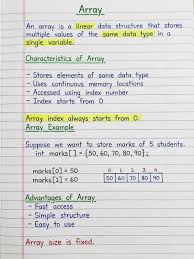 Array
An array is a linear data structure that stores
multiple values of the same data type in a
single variable.
Characteristics of Array
- Stores elements of same data type
- Uses continuous memory locations
- Accessed using index number
- Index starts from 0
Array index always starts from 0.
Array Example
Suppose we want to store marks of 5 students.
int marks[] = {50, 60, 70, 80, 90};
0 1 2 3 4
marks[0] = 50 50 60 70 80 90
marks[1] = 60
Advantages of Array
- Fast access
- Simple structure
- Easy to use
Array size is fixed.